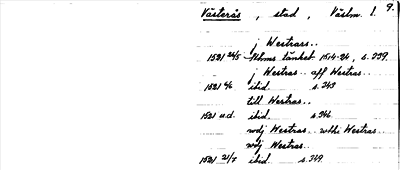 Västerås, stad, Västm. l. 9.
j Westrars..
1521 24/5 Sthms tänkeb 1514-24, s. 239.
j Westras.. aff Westras..
1521 4/6 ibid. s. 243
till Westras..
1521 u.d. ibid. s. 246
wdj Westras.. Westras..
wdj Westras..
1521 21/7 ibid. s. 249